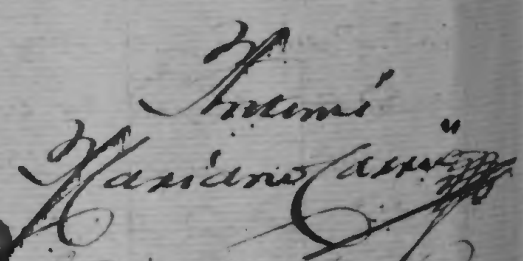 Antemi
Mariano Carri